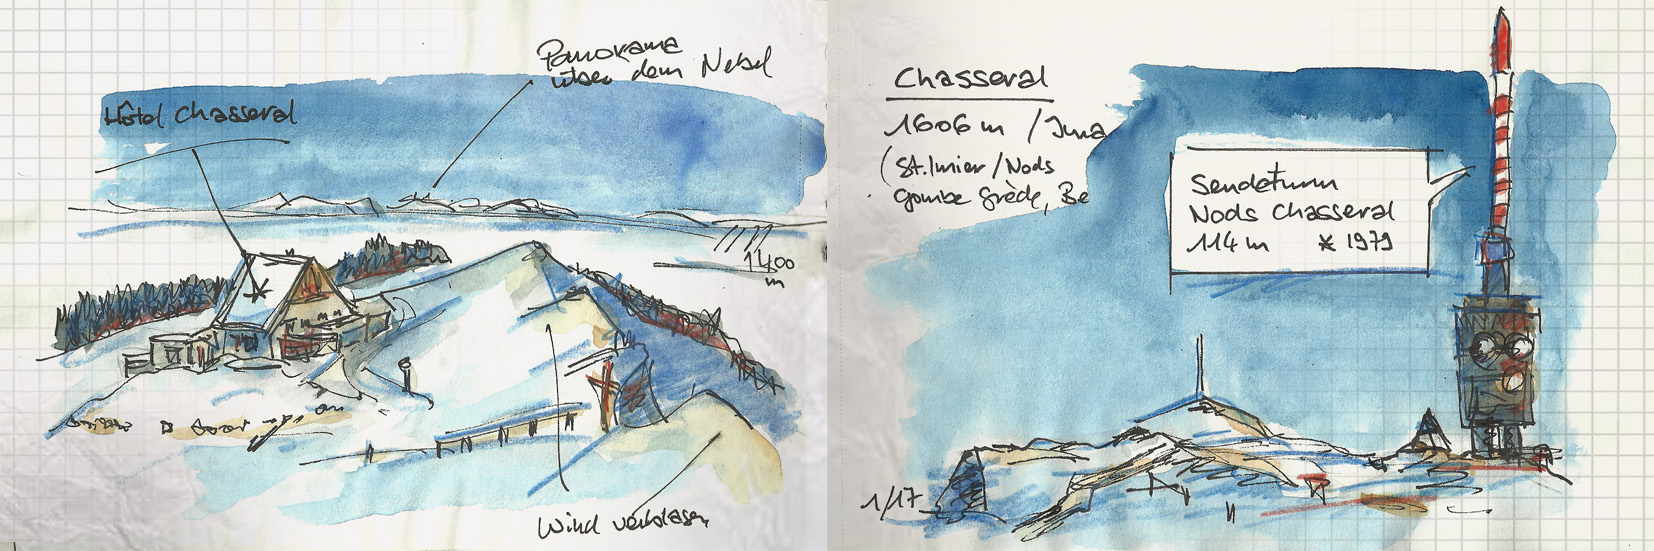 Panorama
über dem Nebel
Hôtel Chasseral
1400
m
Wind verblasen
Chasseral
1606 m / Jura
(St. Imier / Nods
Combe Grède, Be
Sendeturm
Nods Chasseral
114 m * 1979
1/17